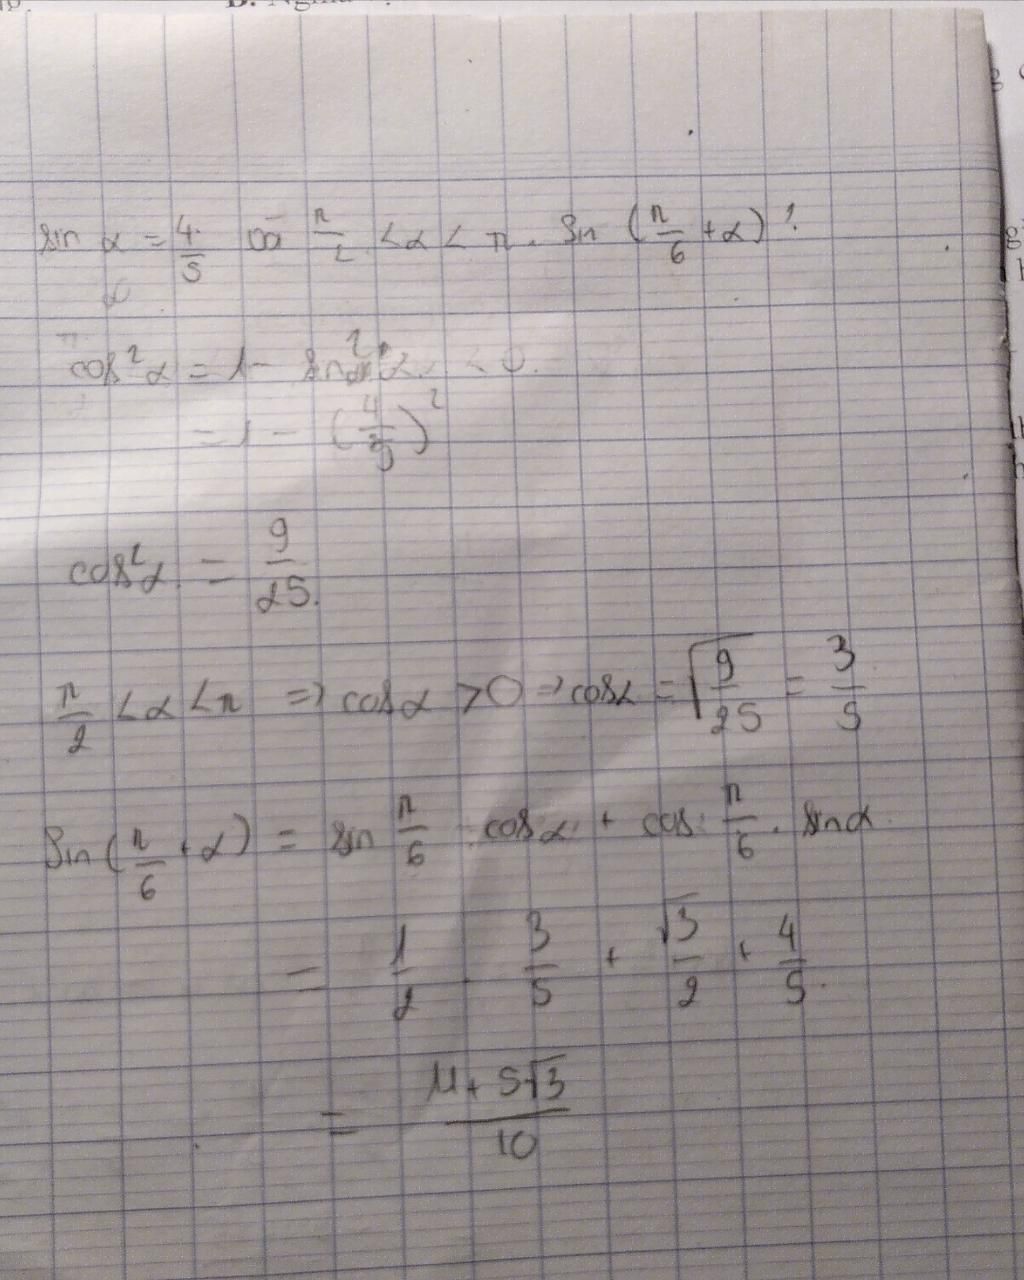 sin α = 4/5 và π/2 < α < π. Sin (π/6 + α)?
cos² α = 1 - sin² α < 0.
= 1 - (4/5)²
cos² α = 9/25
π/2 < α < π => cos α > 0 => cos α = √(9/25) = 3/5
Sin (π/6 + α) = sin π/6 . cos α + cos π/6 . sin α
= 1/2 . 3/5 + √3/2 + 4/5
= (11 + 5√3)/10